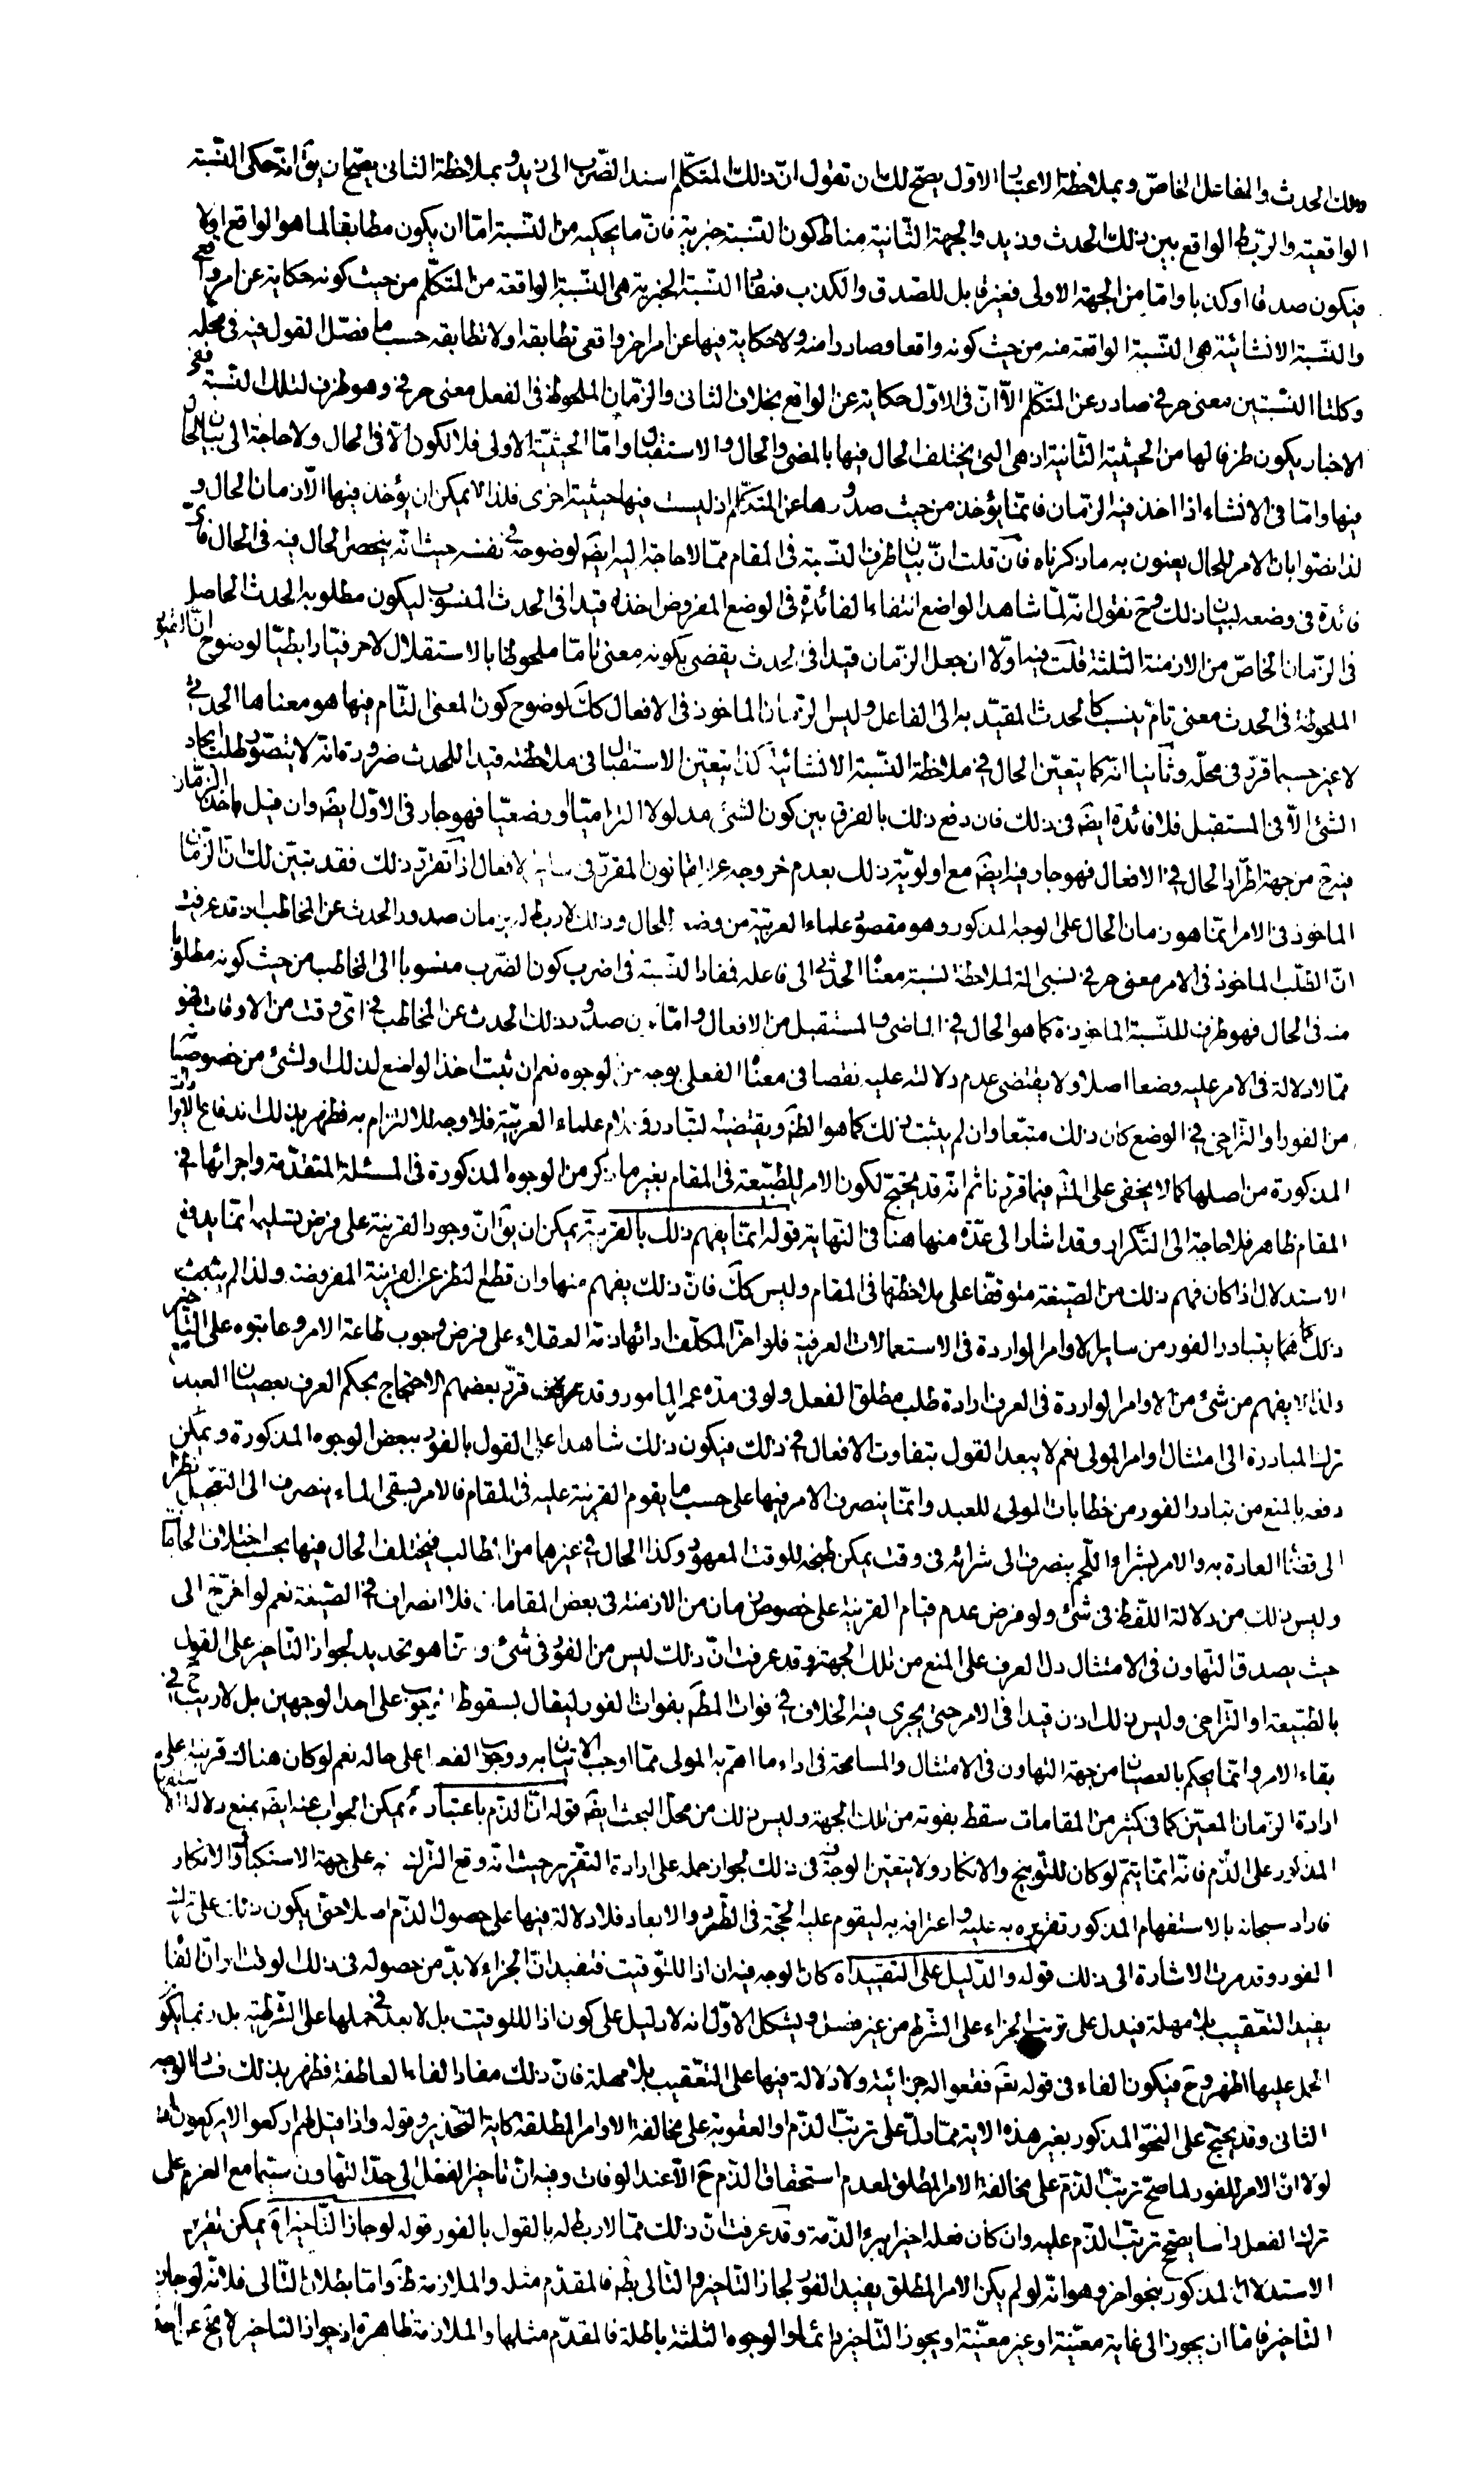 ذلك الحدث والفاعل الخاصّ وبملاحظة الاعتبار الاوّل يصحّ لك ان تقول انّ ذلك المتكلّم اسند الضّرب الى زيد وبملاحظة الثانى يصحّ ان يقٓ انّه حكى النّسبة
الواقعيّة والرّبط الواقع بين ذلك الحدث وزيد والجهة الثّانية مناط كون النّسبة خبريّة فانّ ما يحكيه من النّسبة امّا ان يكون مطابقا لما هو الواقع اولا
فيكون صدقا او كذبا وامّا من الجهة الاولى فغير قابل للصدق والكذب فمفاد النّسبة الخبريّة هى النّسبة الواقعة من المتكلّم من حيث كونه حكاية عن امر واقعى
والنّسبة الانشائيّة هى النّسبة الواقعة منه من حيث كونه واقعا وصادرا منه ولا حكاية فيها عن امر اخر واقعى تطابقه او لا تطابقه حسب ما فصّل القول فيه فى محلّه
وكلتا النّسبتين معنى حرفىّ صادر عن المتكلّم الاّ انّ فى الاوّل حكاية عن الواقع بخلاف الثانى والزّمان الملحوظ فى الفعل معنى حرفىّ وهو ظرف لتلك النّسبة ففى
الاخبار يكون ظرفا لها من الحيثيّة الثّانية اذ هى الّتى يختلف الحال فيها بالمضى والحال والاستقبال وامّا الحيثيّة الاولى فلا تكون الاّ فى الحال ولا حاجة الى بيان الحال
فيها وامّا فى الانشاء اذا اخذ فيه الزّمان فانّما يؤخذ من حيث صدورها عن المتكلّم اذ ليست فيها حيثيّة اخرى فلذا لا يمكن ان يؤخذ فيها الاّ زمان الحال و
لذا نصّوا بان الامر للحال يعنون به ما ذكرناه فان قلت انّ بيان ظرف النّسبة فى المقام ممّا لا حاجة اليه ايضٓ لوضوحه فى نفسه حيث انّه ينحصر الحال فيه فى الحال فاىّ
فائدة فى وضعه لبيان ذلك وحٓ نقول انّه لمّا شاهد الواضع انتفاء الفائدة فى الوضع المفروض اخذه قيدا فى الحدث المنسوب ليكون مطلوبه الحدث الحاصل
فى الزّمان الخاصّ من الازمنة الثلثة قلت فيه اولا ان جعل الزّمان قيدا فى الحدث يقضى بكونه معنى تامّا ملحوظا بالاستقلال لا حرفيّا رابطيّا لوضوح انّ القيود
الملحوظة فى الحدث معنى تامّ ينسب كالحدث المقيّد به الى الفاعل وليس الزّمان الماخوذ فى الافعال كذلك لوضوح كون المعنى التّام فيها هو معناها الحدثى
لا غير حسبما قرّر فى محلّه وثانيا انّه كما يتعيّن الحال فى ملاحظة النّسبة الانشائيّة كذا يتعيّن الاستقبال فى ملاحظته قيدا للحدث ضرورة انّه لا يتصوّر طلب ايجاد
الشئ الاّ فى المستقبل فلا فائدة ايضٓ فى ذلك فان دفع ذلك بالفرق بين كون الشئ مدلولا التزاميّا او وضعيّا فهو جار فى الاوّل ايضٓ وان قيل باخذ الزّمان
فيه حٓ من جهة اطّراد الحال فى الافعال فهو جار فيه ايضٓ مع اولويّة ذلك بعدم خروجه عن القانون المقرّر فى ساير الافعال اذا تقرّر ذلك فقد تبيّن لك انّ الزّمان
الماخوذ فى الامر انّما هو زمان الحال على الوجه المذكور وهو مقصود علماء العربيّة من وضعه للحال وذلك لا ربط له بزمان صدور الحدث عن المخاطب اذ قد عرفت
انّ الطّلب الماخوذ فى الامر معنى حرفىّ نسبىّ الة لملاحظة نسبة معناه الحدثى الى فاعله فمفاد النّسبة فى اضرب كون الضّرب منسوبا الى المخاطب من حيث كونه مطلوبا
منه فى الحال فهو ظرف للنّسبة الماخوذة كما هو الحال فى الماضى والمستقبل من الافعال وامّا زمان صدور ذلك الحدث عن المخاطب فى اىّ وقت من الاوقات فهو
ممّا لا دلالة فى الامر عليه وضعا اصلا ولا يقتضى عدم دلالته عليه نقصا فى معناه الفعلى بوجه من الوجوه نعم ان ثبت اخذ الواضع لذلك او لشئ من خصوصيّاته
من الفور او التّراخى فى الوضع كان ذلك متّبعا وان لم يثبت ذلك كما هو الظٓ ويقتضيه التّبادر وكلام علماء العربيّة فلا وجه للالتزام به فظهر بذلك اندفاع الايرادات
المذكورة من اصلها كما لا يخفى على المتامّل فيما قرّرنا ثم انّه قد يحتجّ لكون الامر للطّبيعة فى المقام بغير ما ذكر من الوجوه المذكورة فى المسئلة المتقدّمة واجرائها فى
المقام ظاهر فلا حاجة الى التّكرار وقد اشار الى عدّة منها هنا فى النّهاية قوله انّما يفهم ذلك بالقرينة يمكن ان يقٓ انّ وجود القرينة على فرض تسليمه انّما يدفع
الاستدلال اذا كان فهم ذلك من الصّيغة متوقّفا على ملاحظتها فى المقام وليس كذلك فانّ ذلك يفهم منها وان قطع النظر عن القرينة المفروضة ولذا لم يثبت
ذلك كما يتبادر الفور من ساير الاوامر الواردة فى الاستعمالات العرفيّة فلو اخّر المكلّف ادائها ذمّه العقلاء على فرض وجوب طاعة الامر وعاتبوه على التّاخير
ولذا لا يفهم من شئ من الاوامر الواردة فى العرف ارادة طلب مطلق الفعل ولو فى مدّة عمر المامور وقد قرّر بعضهم الاحتجاج بحكم العرف بعصيان العبد
ترك المبادرة الى امتثال اوامر المولى نعم لا يبعد القول بتفاوت الافعال فى ذلك فيكون ذلك شاهدا على القول بالفور ببعض الوجوه المذكورة ويمكن
دفعه بالمنع من تبادر الفور من خطابات المولى للعبد وانّما ينصرف الامر فيها على حسب ما يقوم القرينة عليه فى المقام فالامر بسقى الماء ينصرف الى التعجيل نظرا
الى قضاء العادة به والامر بشراء اللّحم ينصرف الى شرائه فى وقت يمكن طبخه للوقت المعهود وكذا الحال فى غيرهما من المطالب فيختلف الحال فيها بحسب اختلاف الحاجات
وليس ذلك من دلالة اللّفظ فى شئ ولو فرض عدم قيام القرينة على خصوص زمان من الازمنة فى بعض المقامات فلا انصراف فى الصّيغة نعم لو اخّر حٓ الى
حيث يصدق التهاون فى الامتثال دلّ العرف على المنع من تلك الجهة وقد عرفت انّ ذلك ليس من الفور فى شئ وانّما هو تحديد لجواز التّاخير على القول
بالطّبيعة او التّراخى وليس ذلك اذن قيدا فى الامر حتى يجرى فيه الخلاف فى فوات المطٓ بفوات الفور ليقال بسقوط الوجوب على احد الوجهين بل لا ريب حٓ فى
بقاء الامر وانّما يحكم بالعصيان من جهة التهاون فى الامتثال والمسامحة فى اداء ما اهمّ به المولى ممّا اوجب الاتيان به ووجوب الفعل على حاله نعم لو كان هناك قرينة على
ارادة الزّمان المعيّن كما فى كثير من المقامات سقط بفوته من تلك الجهة وليس ذلك من محلّ البحث ايضٓ قوله انّ الذّم باعتبار اه يمكن الجواب عنه ايضٓ بمنع دلالة الاستفهام
المذكور على الذّم فانّه انّما يتمّ لو كان للتّوبيخ والانكار ولا يتعيّن الوجه فى ذلك لجواز حمله على ارادة التقرير حيث انّه وقع التّرك منه على جهة الاستكبار والانكار
فاراد سبحانه بالاستفهام المذكور تقريره به عليه واعترافه به ليقوم عليه الحجّة فى الطّرد والابعاد فلا دلالة فيها على حصول الذّم اصلا حتى يكون ذلك على ترك
الفور وقد مرت الاشارة الى ذلك قوله والدّليل على التقييد اه كان الوجه فيه ان اذا للتّوقيت فتفيد انّ الجزاء لا بدّ من حصوله فى ذلك الوقت او انّ الفاء
يفيد التّعقيب بلا مهلة فيدل على ترتّب الجزاء على الشّرط من غير فصل ويشكل الاوّل انه لا دليل على كون اذا للتوقيت بل لا بعد فى حملها على الشّرطيّة بل ربّما يكون
الحمل عليها اظهر وحٓ فيكون الفاء فى قوله تعٓ فقعوا له جزائيّة ولا دلالة فيها على التّعقيب بلا مهلة فانّ ذلك مفاد الفاء العاطفة فظهر بذلك فساد الوجه
الثانى وقد يحتجّ على النّحو المذكور بغير هذه الاية ممّا دلّ على ترتّب الذّم او العقوبة على مخالفة الاوامر المطلقة كاية التّحذير وقوله واذا قيل لهم اركعوا لا يركعون فانّه
لولا انّ الامر للفور لما صحّ ترتّب الذّم على مخالفة الامر المطلق لعدم استحقاق الذّم حٓ الاّ عند الوفات وفيه انّ تاخير الفعل الى حدّ التهاون سيّما مع العزم على
ترك الفعل راسا يصحّ ترتّب الذّم عليه وان كان فعله اخيرا مبرئ الذّمة وقد عرفت انّ ذلك ممّا لا ربط له بالقول بالفور قوله لو جاز التّاخير اه يمكن تقرير
الاستدلال المذكور بنحو اخر وهو انّه لو لم يكن الامر المطلق يفيد الفور لجاز التّاخير والتالى بطٓ فالمقدّم مثله والملازمة ظٓ وامّا بطلان التّالى فلانّه لو جاز
التاخير فامّا ان يجوز الى غاية معيّنة او غير معيّنة او يجوز التّاخير دائما والوجوه الثلثة باطلة فالمقدّم مثلها والملازمة ظاهرة اذ جواز التاخير لا يخٓ عن احد